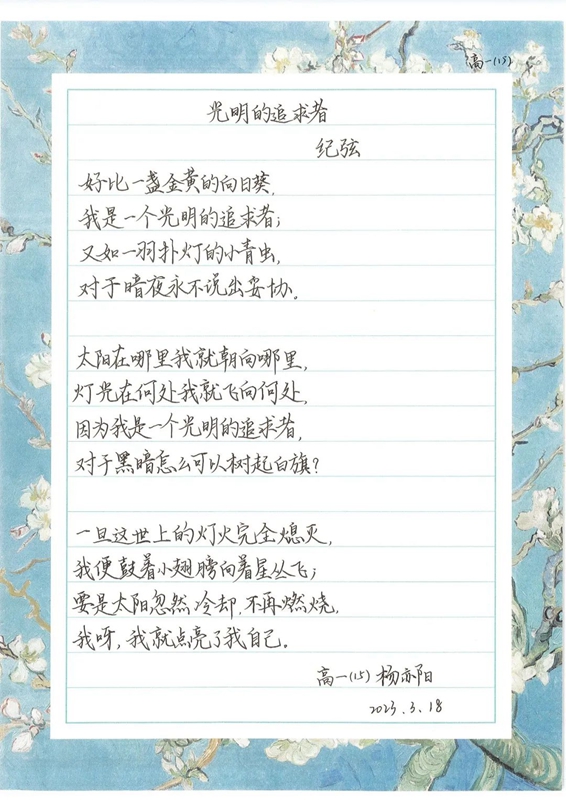 高一(15)
光明的追求者
纪弦
好比一盏金黄的向日葵,
我是一个光明的追求者;
又如一羽扑灯的小青虫,
对于暗夜永不说出妥协。
太阳在哪里我就朝向哪里,
灯光在何处我就飞向何处,
因为我是一个光明的追求者,
对于黑暗怎么可以树起白旗?
一旦这世上的灯火完全熄灭,
我便鼓着小翅膀向着星丛飞;
要是太阳忽然冷却,不再燃烧,
我呀,我就点亮了我自己。
高一(15) 杨亦阳
2023.3.18